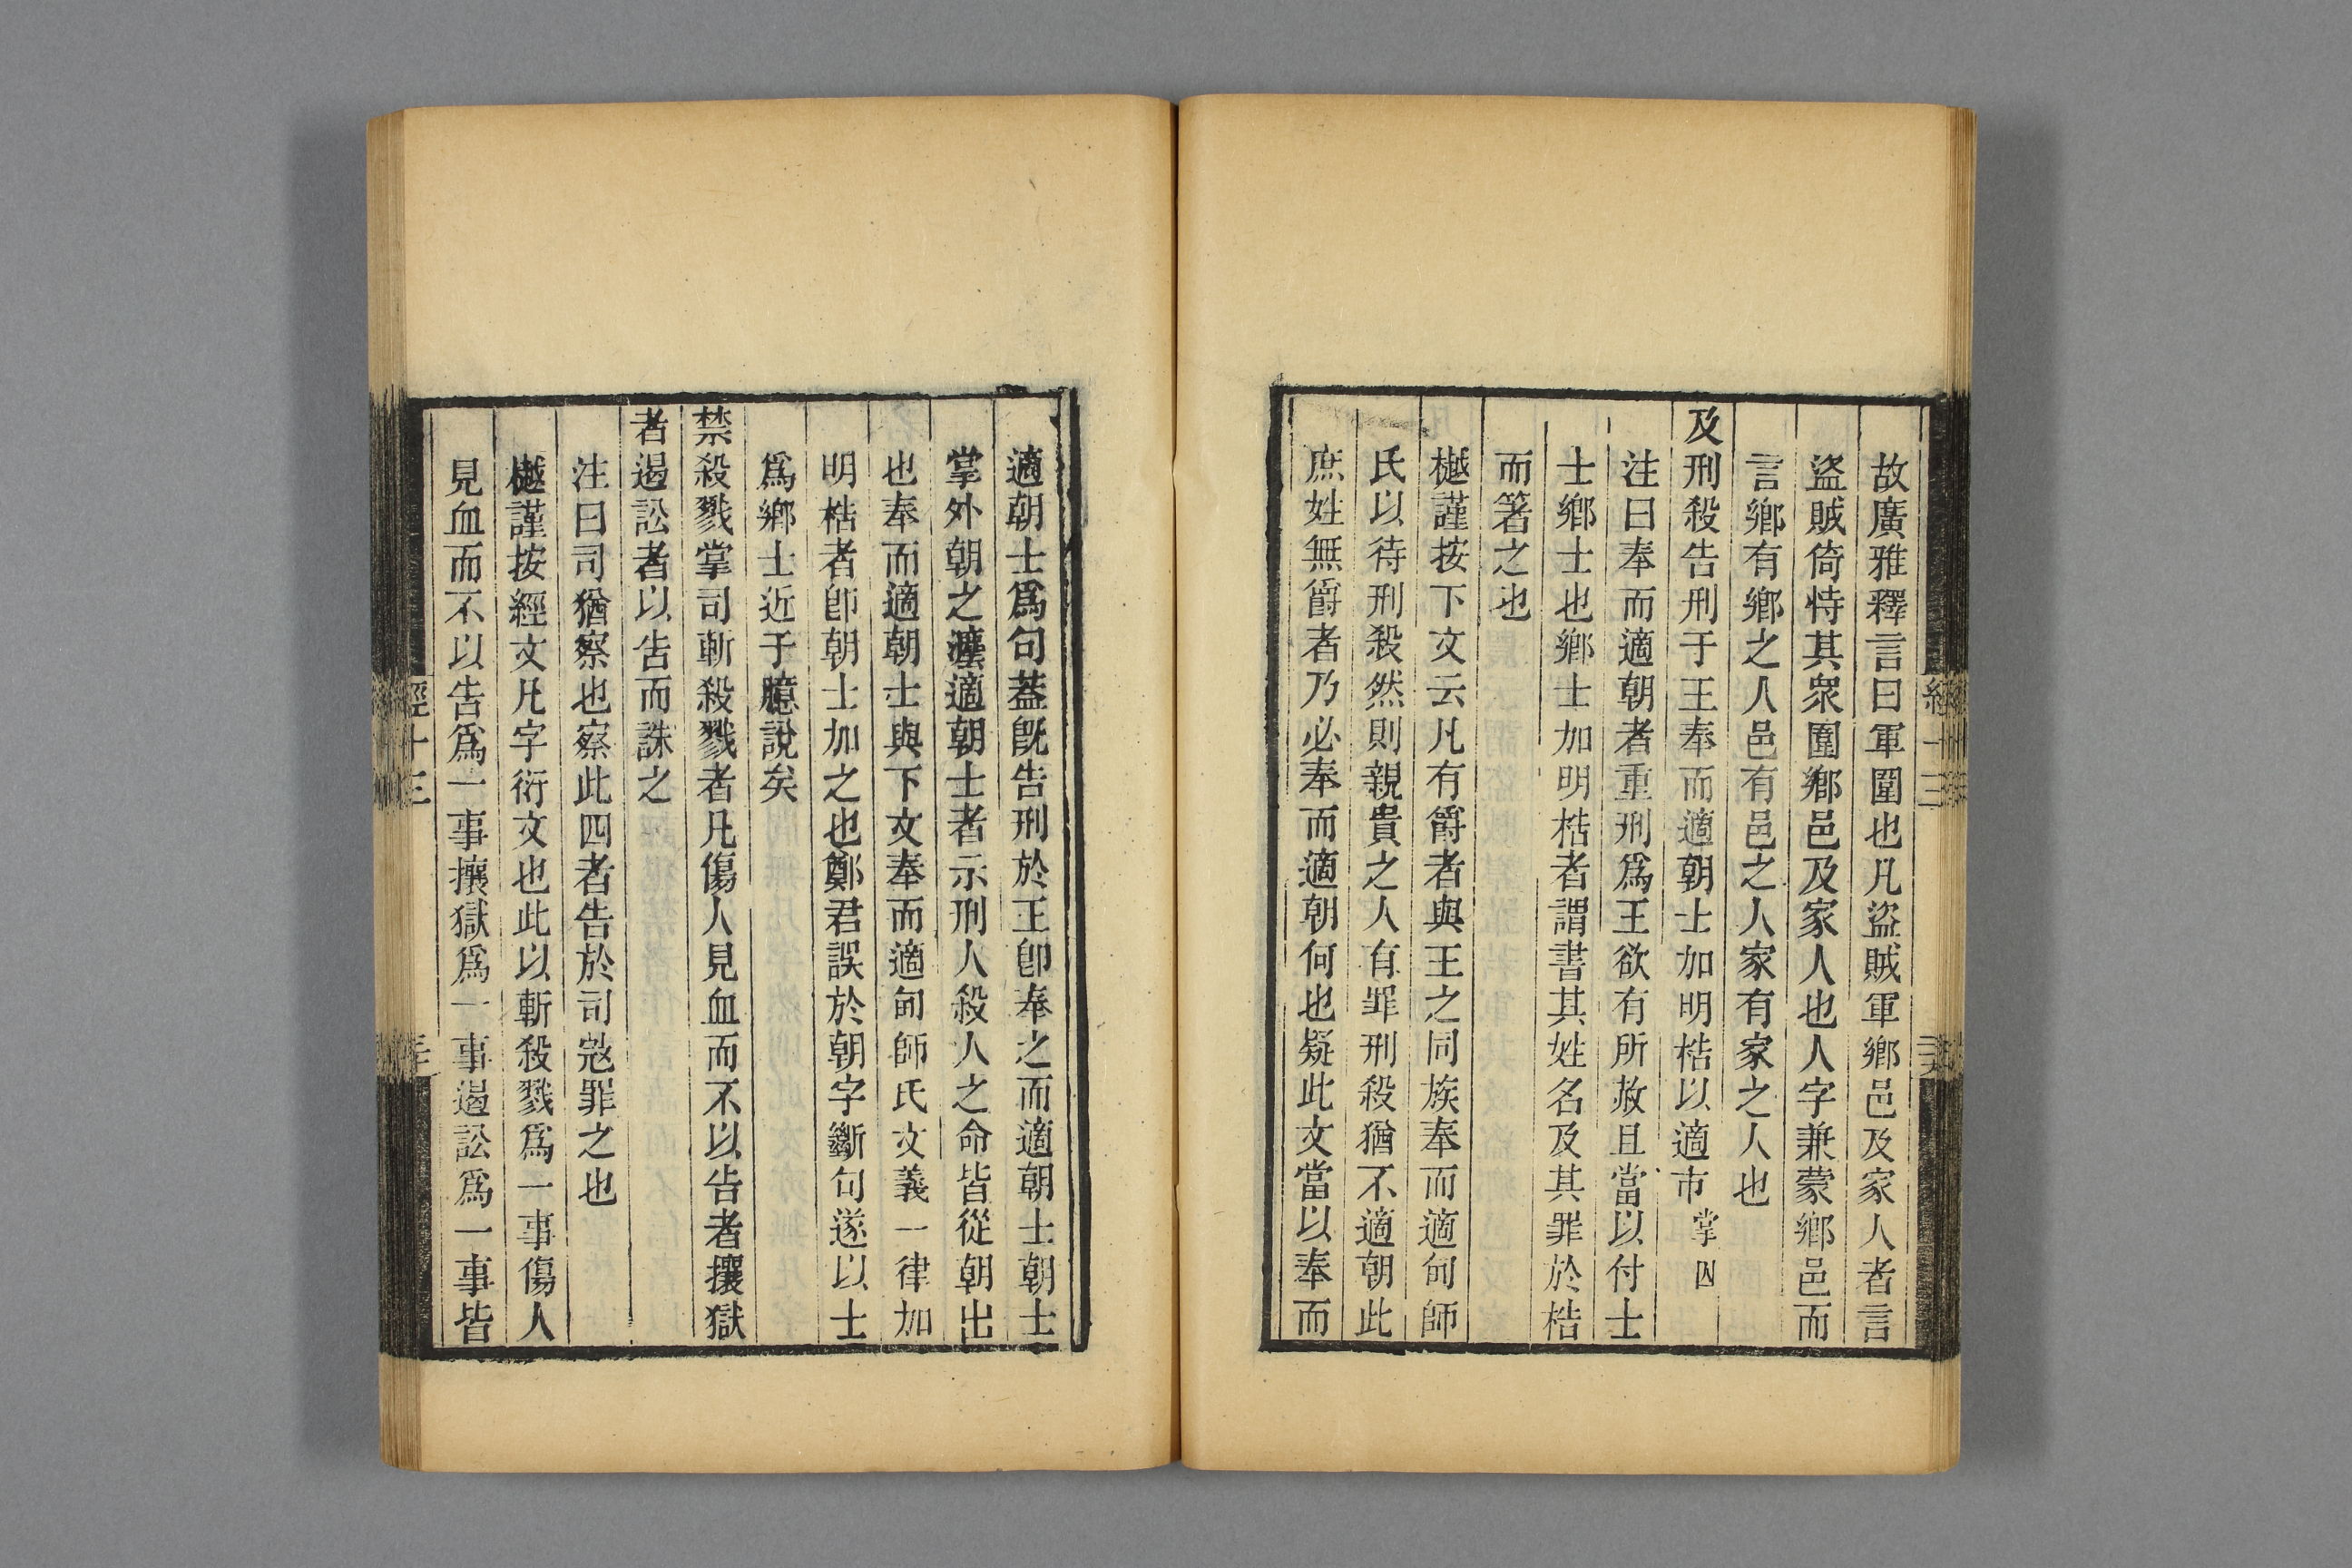 故廣雅釋言曰軍圍也凡盜賊軍鄉邑及家人者言
盜賊倚恃其衆圍鄉邑及家人也人字兼蒙鄉邑而
言鄉有鄉之人邑有邑之人家有家之人也
及刑殺告刑于王奉而適朝士加明梏以適市掌囚
注曰奉而適朝者重刑爲王欲有所赦且當以付士
士鄉士也鄉士加明梏者謂書其姓名及其罪於梏
而箸之也
樾謹按下文云凡有爵者與王之同族奉而適甸師
氏以待刑殺然則親貴之人有罪刑殺猶不適朝此
庶姓無爵者乃必奉而適朝何也疑此文當以奉而
適朝士爲句蓋旣告刑於王卽奉之而適朝士朝士
掌外朝之灋適朝士者示刑人殺人之命皆從朝出
也奉而適朝士與下文奉而適甸師氏文義一律加
明梏者卽朝士加之也鄭君誤於朝字斷句遂以士
爲鄉士近于臆說矣
禁殺戮掌司斬殺戮者凡傷人見血而不以告者攘獄
者遏訟者以告而誅之
注曰司猶察也察此四者告於司宼罪之也
樾謹按經文凡字衍文也此以斬殺戮爲一事傷人
見血而不以告爲一事攘獄爲一事遏訟爲一事皆
經十三